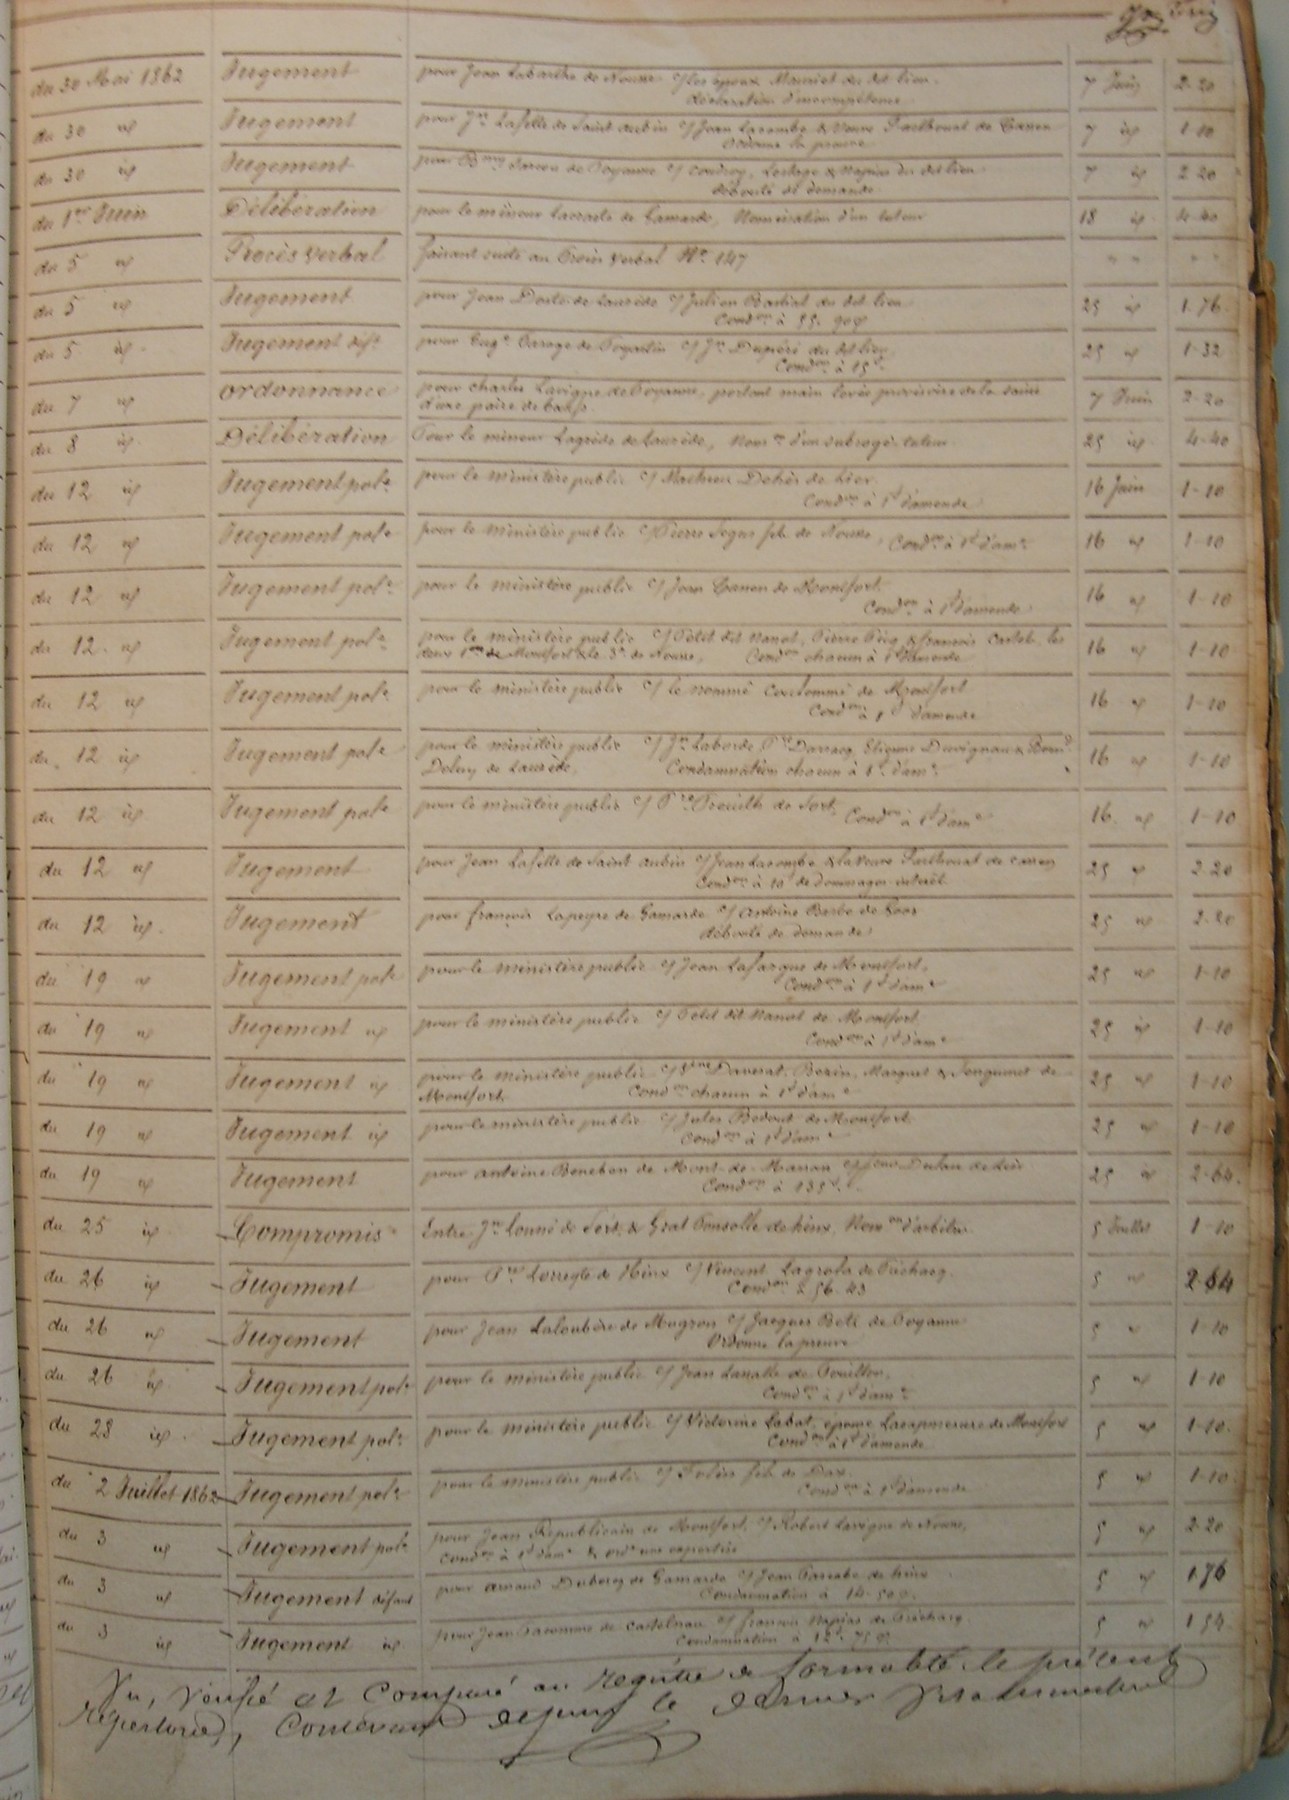 du 30 Mai 1862 Jugement pour Jean Labarthe de Nousse c/ les époux Mauriet du dit lieu. 7 Juin 2-20
déclaration d'incompétence
du 30 id Jugement pour Jn Lafitte de Saint aubin c/ Jean Lacombe & Veuve de Cassen 7 id 1-10
Ordonne la preuve
du 30 id Jugement pour de Poyanne c/ Lestage & Napias du dit lieu 7 id 2-20
débouté de demande
du 1er Juin Délibération pour le mineur de Gamarde, Nomination d'un tuteur 18 id 4-40
du 5 id Procès verbal faisant suite au Procès verbal No 147 " " " "
du 5 id Jugement pour Jean de Laurède c/ Julien Bastiat du dit lieu 25 id 1-76
Condon à 55. 90c
du 5 id Jugement déft pour Eugne de Poyartin c/ Jn Dupéré du dit lieu 25 id 1-32
Condon à 15f
du 7 id Ordonnance pour Charles Lavigne de Poyanne, portant main levée provisoire de la saisie 7 Juin 2-20
d'une paire de bœufs.
du 8 id Délibération Pour le mineur Lagrède de Laurède, Nomon d'un subrogé tuteur 25 id 4-40
du 12 id Jugement pole pour le ministère public c/ Mathieu de hier 16 Juin 1-10
Condon à 1f d'amende
du 12 id Jugement pole pour le ministère public c/ Pierre fils de Nousse, Condon à 1f d'ame 16 id 1-10
du 12 id Jugement pole pour le ministère public c/ Jean de Montfort 16 id 1-10
Condon à 1f d'amende
du 12 id Jugement pole pour le ministère public c/ Petit dit Nanot, Pierre & françois les 16 id 1-10
deux 1ers de Montfort & le 3e de Nousse, Condon chacun à 1f d'amende
du 12 id Jugement pole pour le ministère public c/ le nommé de Montfort 16 id 1-10
Condon à 1f d'amende
du 12 id Jugement pole pour le ministère public c/ Jn Laborde, Pre Darracq, Etienne Duvignau & Bernd 16 id 1-10
de Laurède, Condamnation chacun à 1f d'ame
du 12 id Jugement pole pour le ministère public c/ Pre de Sort. Condon à 1f d'ame 16 id 1-10
du 12 id Jugement pour Jean Lafitte de Saint aubin c/ Jean Lacombe & la Veuve de Cassen 25 id 2-20
Condon à 10f de Dommages-intérêt
du 12 id Jugement pour françois Lapeyre de Gamarde c/ Antoine Barbe de Goos 25 id 2-20
débouté de demande
du 19 id Jugement pole pour le ministère public c/ Jean Lafargue de Montfort, 25 id 1-10
Condon à 1f d'ame
du 19 id Jugement id pour le ministère public c/ Petit dit Nanot de Montfort 25 id 1-10
Condon à 1f d'ame
du 19 id Jugement id pour le ministère public c/ Daverat, Bezin, Marquet & de 25 id 1-10
Montfort. Condon chacun à 1f d'ame
du 19 id Jugement id pour le ministère public c/ Jules de Montfort. 25 id 1-10
Condon à 1f d'ame
du 19 id Jugement pour antoine Benebon de Mont-de-Marsan c/ 25 id 2-64.
Condon à 135f
du 25 id Compromis Entre Jn Lonné de Sort, & Grat de hinx, Nomon d'arbitre 5 Juillet 1-10
du 26 id Jugement pour Pre Lorreyte de Hinx c/ Vincent Lagrola de Préchacq. 5 id 2-64
Condon à 56. 43
du 26 id Jugement pour Jean Laloubère de Mugron c/ Jacques de Poyanne 5 id 1-10
Ordonne la preuve
du 26 id Jugement pole pour le ministère public c/ Jean Lasalle de Pouillon, 5 id 1-10
Condon à 1f d'ame
du 28 id Jugement pole pour le ministère public c/ Victorine Labat, épouse de Montfort 5 id 1-10.
Condon à 1f d'amende
du 2 Juillet 1862 Jugement pole pour le ministère public c/ fils de Dax 5 id 1-10
Condon à 1f d'amende
du 3 id Jugement pole pour Jean Républicain de Montfort, c/ Robert Lavigne de Nousse, 5 id 2-20
Condon à 1f d'ame & ordne une expertise
du 3 id Jugement défaut pour arnaud Duboscq de Gamarde c/ Jean de hinx 5 id 1.76
Condamnation à 14-50c.
du 3 id Jugement id pour Jean de Castelnau c/ françois Napias de Préchacq. 5 id 1 54.
Condamnation à 12f 75c
Vu, Vérifié et Comparé au registre de formalité le présent
répertoire, Contenant depuis le dernier